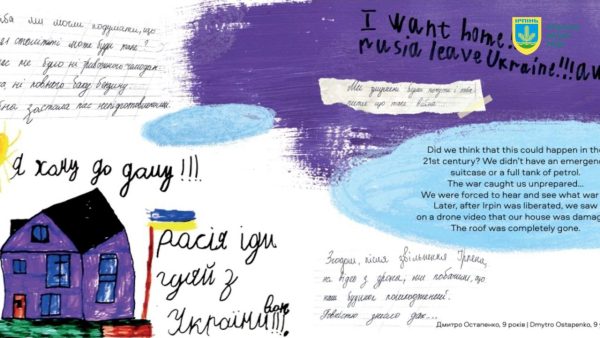 ба ми могли подумати, що
21 столітті може бути таке?
нас не було ні тривожного
ні повного баку бензину...
застала нас непідготовленими.
I want home.
rusia leave Ukraine!!!
ІРПІНЬ
Ми змушені були почути і поба-
чити що таке війна...
Did we think that this could happen in the
21st century? We didn't have an emergen
suitcase or a full tank of petrol.
The war caught us unprepared...
We were forced to hear and see what war
Later, after Irpin was liberated, we saw
on a drone video that our house was damag
The roof was completely gone.
Я хочу до дому !!!
расія іди
гуляй з
України!!!
Згодом, після звільнення Ірпеня,
на відео з дрона, ми побачили, що
наш будинок пошкоджений.
Повністю знесло дах...
Дмитро Остапенко, 9 років | Dmytro Ostapenko, 9 y